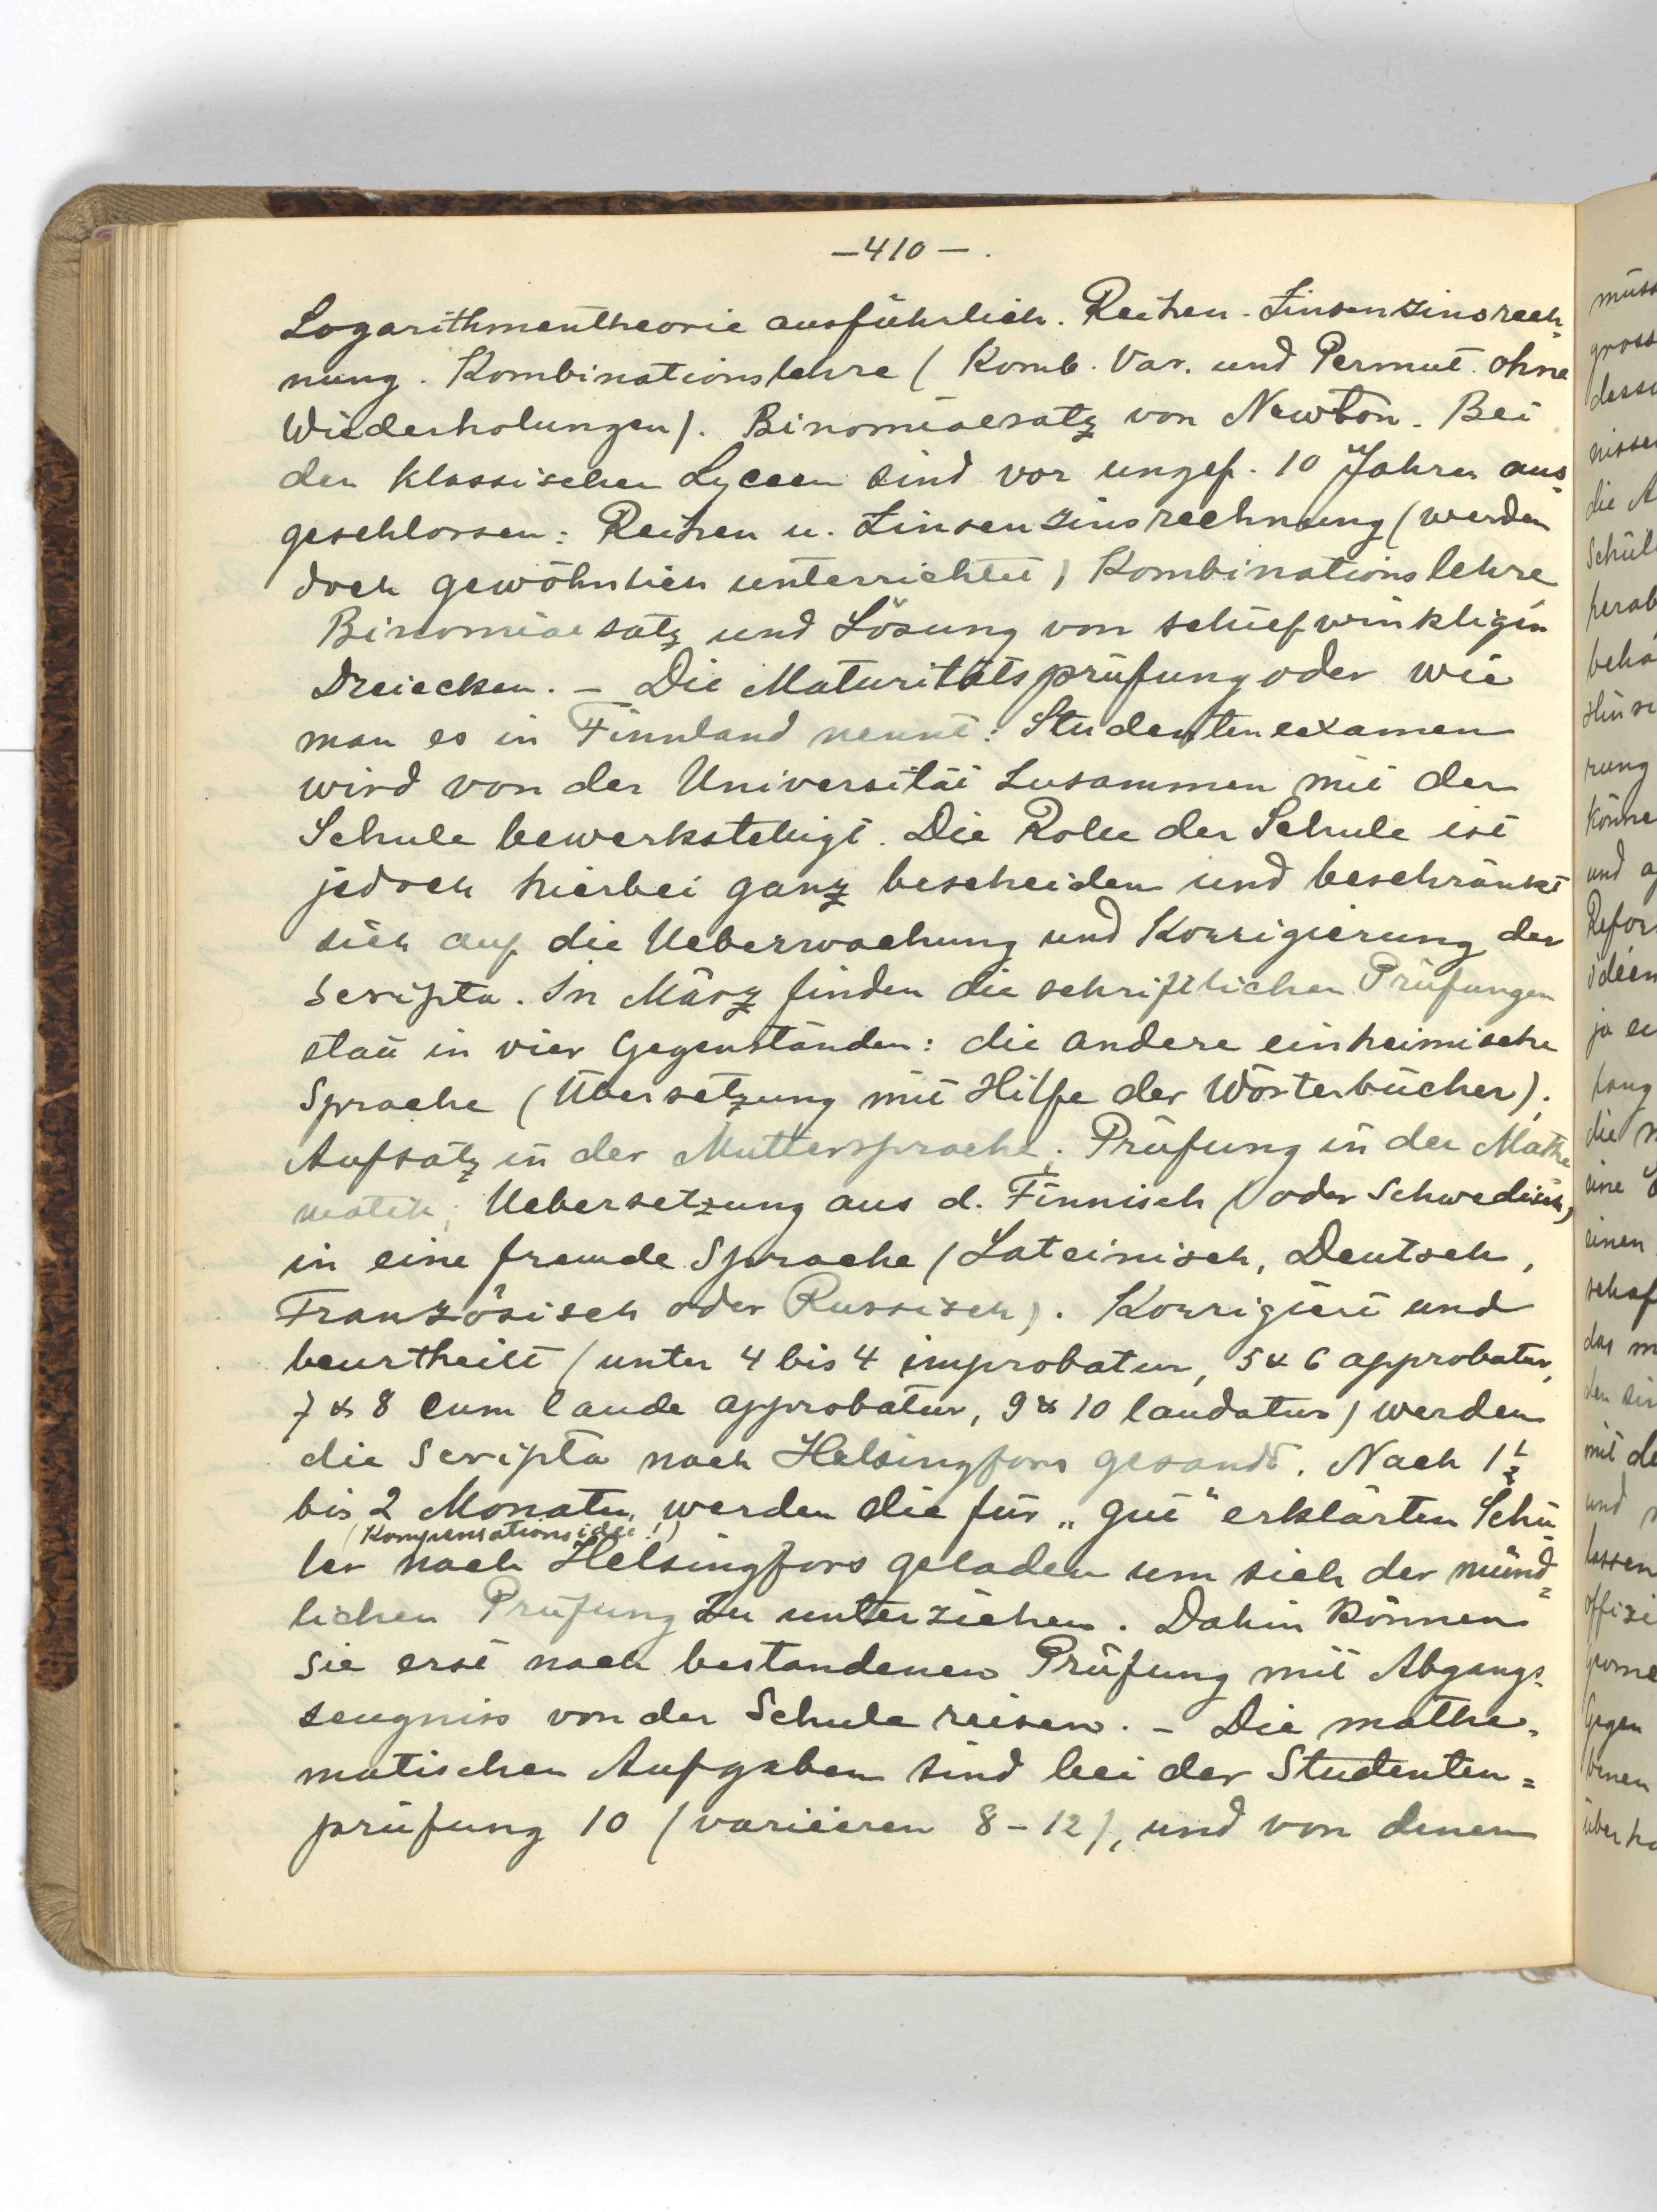 —410—.
Logarithmentheorie ausführlich. Reihen - Zinsenzinsrech-
nung. Kombinationslehre (Komb. Var. und Permut. ohne
Wiederholungen). Binomialsatz von Newton. Bei
den klassischen Lyceen sind vor ungef. 10 Jahren aus-
geschlossen: Reihen u. Zinsenzinsrechnung (werden
doch gewöhnlich unterrichtet) Kombinationslehre
Binomialsatz und Lösung von schiefwinkligen
Dreiecken. - Die Maturitätsprüfung oder wie
man es in Finnland nennt: Studentenexamen
wird von der Universität zusammen mit der
Schule bewerkstelligt. Die Rolle der Schule ist
jedoch hierbei ganz bescheiden und beschränkt
sich auf die Ueberwachung und Korrigierung der
Scripta. In März finden die schriftlichen Prüfungen
statt in vier Gegenständen: die andere einheimische
Sprache (Übersetzung mit Hilfe der Wörterbücher);
Aufsatz in der Muttersprache; Prüfung in der Mathe
matik; Uebersetzung aus d. Finnisch (oder Schwedisch)
in eine fremde Sprache (Lateinisch, Deutsch,
Französisch oder Russisch). Korrigiert und
beurtheilt (unter 4 bis 4 improbatur, 5 & 6 approbatur,
7 & 8 cum laude approbatur, 9 & 10 laudatur) werden
die Scripta nach Helsingfors gesandt. Nach 1½
bis 2 Monaten werden die für „gut" erklärten Schü
(Kompensationsidee!)
ler nach Helsingfors geladen um sich der münd=
lichen Prüfung zu unterziehen. Dahin können
sie erst nach bestandenen Prüfung mit Abgangs-
zeugniss von der Schule reisen. - Die mathe-
matischen Aufgaben sind bei der Studenten=
prüfung 10 (variieren 8-12), und von denen
müss
gross
desse
nisse
die A
Schül
herab
behä
Hinsi
rung
könne
und a
Refor
ideen
ja ei
hang
die m
eine
einen
schaf
das m
den sin
mit de
und
lassen
offizi
Gegen
benen
überha